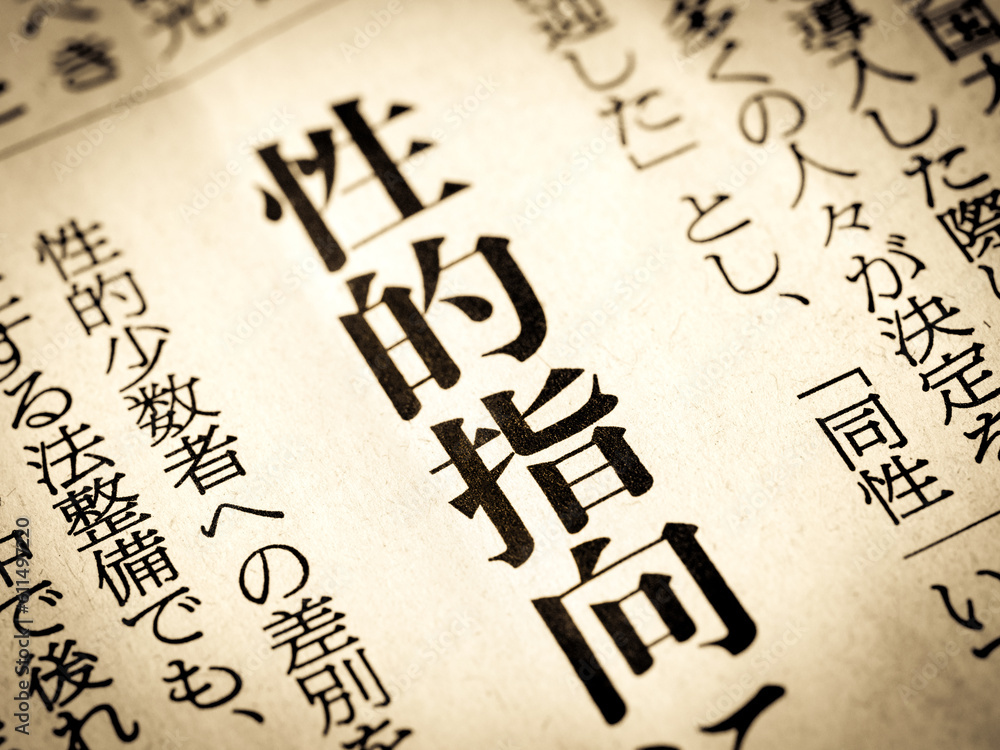 導入した際
多くの人々が決定を
迎した」とし、「同性
い
性的指向
性的少数者への差別を
する法整備でも、
で後れ
べき
Adobe Stock | #611497220